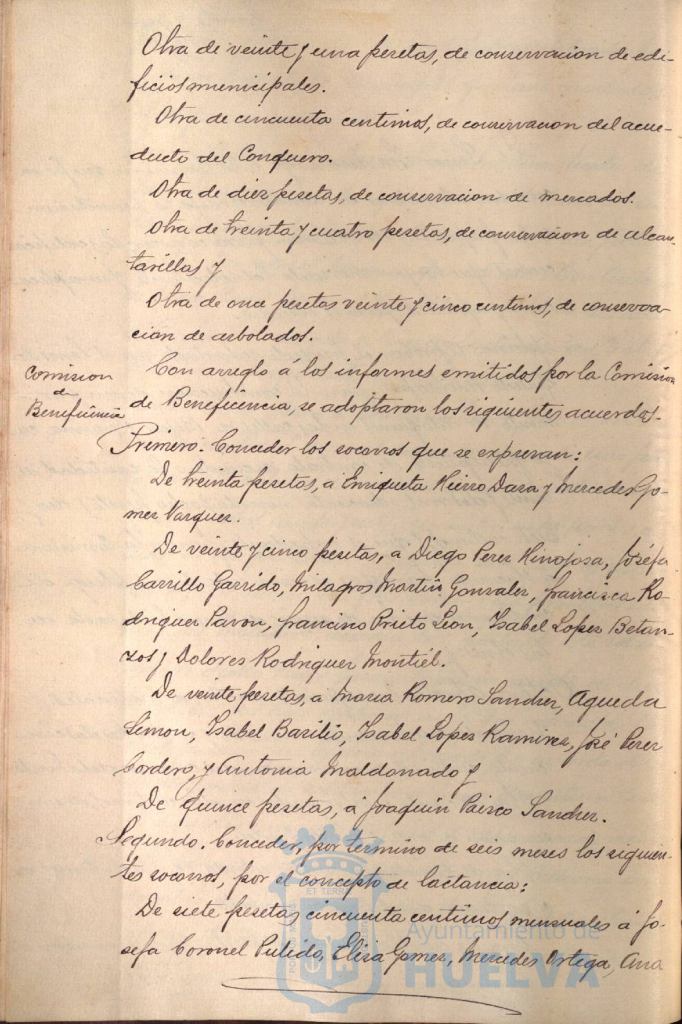 Otra de veinte y una pesetas, de conservacion de edi-
ficios municipales.
Otra de cincuenta centimos, de conservacion del acue-
ducto del Conquero.
Otra de diez pesetas, de conservacion de mercados.
Otra de treinta y cuatro pesetas, de conservacion de alcan-
tarillas y
Otra de once pesetas veinte y cinco centimos, de conserva-
cion de arbolados.
Comision
de
Beneficencia
Con arreglo á los informes emitidos por la Comision
de Beneficencia, se adoptaron los siguientes acuerdos.
Primero. Conceder los socorros que se expresan:
De treinta pesetas, á Enriqueta Hierro Daza y Mercedes Go-
mez Vazquez.
De veinte y cinco pesetas, a Diego Perez Hinojosa, Joséfa
Carrillo Garrido, Milagros Martin Gonzalez, francisca Ro-
driguez Pavon, francisco Prieto Leon, Isabel Lopez Betan-
zos y Dolores Rodriguez Montiél.
De veinte pesetas, a Maria Romero Sanchez, Agueda
Limon, Isabel Basilio, Isabel Lopez Ramirez, José Perez
Cordero, y Antonia Maldonado y
De quince pesetas, á Joaquin Sanchez.
Segundo. Conceder, por termino de seis meses los siguien-
tes socorros, por el concepto de lactancia:
De siete pesetas cincuenta centimos mensuales á Jo-
sefa Coronel Pulido, Elisa Gomez, Mercedes Ortega, Ana
Ayuntamiento de
HUELVA